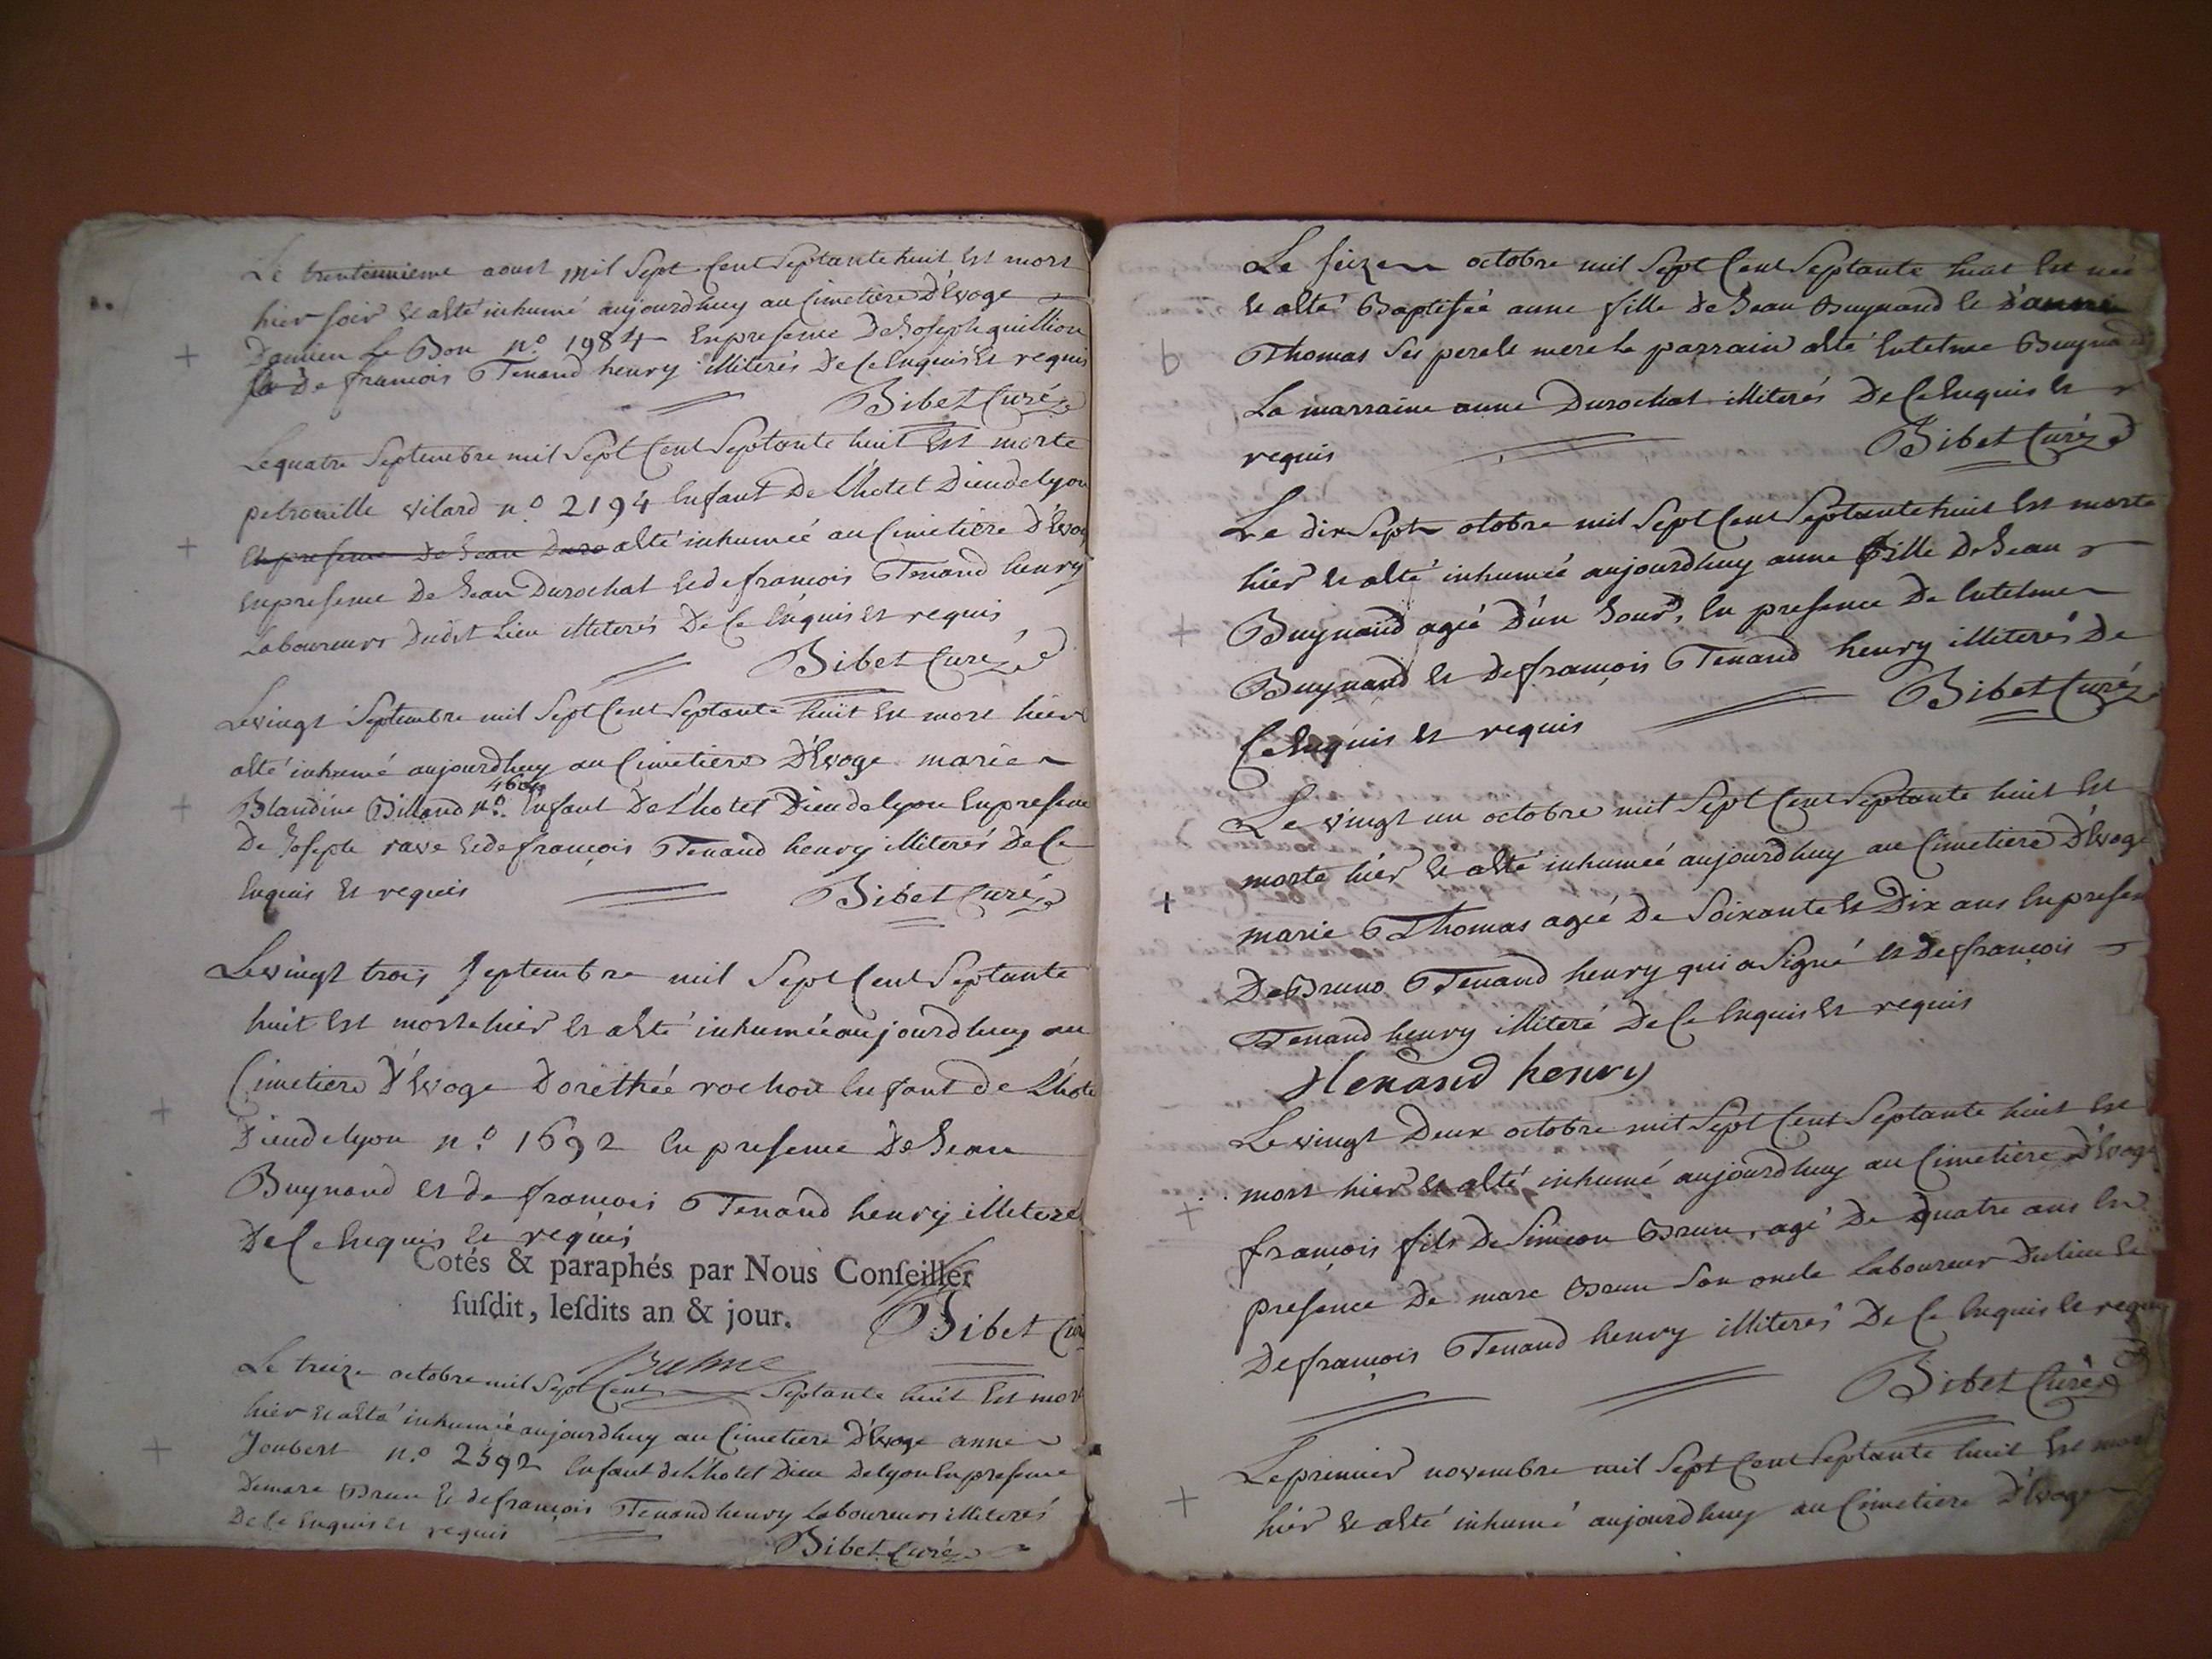 Le trentunieme aoust mil Sept Cent Septante huit Est mort
hier soir Et a Eté inhumé aujourdhuy au Cimetiere D'Evoge
Damien Le Bon n.º 1984 En presence De Joseph guillion
De francois Tenand henry illiterés De Ce Enquis Et requis
Bibet Curé
Le quatre Septembre mil Sept Cent Septante huit Est morte
petronille vilard n.º 2194 Enfant De L'hotel Dieu de lyon
En presence De Jean Duro a Eté inhumeé au Cimetiere D'Evog
En presence De Jean Durochat Et de francois Tenand henry
Laboureurs Dudit Lieu illiterés De Ce Enquis Et requis
Bibet Curé
Le vingt Septembre mil Sept Cent Septante huit Est mort hier
a Eté inhumé aujourdhuy au Cimetiere D'Evoge marie
Blandine Billand n.º Enfant De L'hotel Dieu de lyon En presence
De Joseph rave Et de francois Tenand henry illiterés De Ce
Enquis Et requis
Bibet Curé
Le vingt trois Septembre mil Sept Cent Septante
huit Est morte hier Et a Eté inhumée aujourdhuy au
Cimetiere D'Evoge Dorethée rochon Enfant de L'hotel
Dieu de lyon n.º 1692 En presence De Jean
Buynand Et de francois Tenand henry illiteré
De Ce Enquis Et requis
Cotés & paraphés par Nous Conſeiller
ſuſdit, leſdits an & jour.
Bibet Cur
Le treize octobre mil Sept Cent Septante huit Est mort
hier Et a Eté inhumée aujourdhuy au Cimetiere D'Evoge anne
Joubert n.º 2392 Enfant de L'hotel Dieu De lyon En presence
De marc Brun Et de francois Tenand henry Laboureurs illiterés
De Ce Enquis Et requis
Bibet Curé
Le seize octobre mil Sept Cent Septante huit Est née
Et a Eté Baptisée anne fille De Jean Buynand Et D'anne
Thomas Ses pere Et mere Le parrain a Eté Entelme Buynand
La marraine anne Durochat illiterés De Ce Enquis Et
requis
Bibet Curé
Le dix Sept otobre mil Sept Cent Septante huit Est morte
hier Et a Eté inhumeé aujourdhuy anne fille De Jean
Buynand ageé D'un Jour, En presence De Entelme
Buynand Et De francois Tenand henry illiterés De
Ce Enquis Et requis
Bibet Curé
Le vingt un octobre mil Sept Cent Septante huit Est
morte hier Et a Eté inhumeé aujourdhuy au Cimetiere D'Evoge
marie Thomas ageé De Soixante Et Dix ans En presen
De Bruno Tenand henry qui a Signé Et De francois
Tenand henry illiteré De Ce Enquis Et requis
tenand henry
Le vingt Deux octobre mil Sept Cent Septante huit Est
mort hier Et a Eté inhumé aujourdhuy au Cimetiere D'Evoge
francois fils De Simeon Brun, agé De quatre ans En
presence De marc Brun Son oncle Laboureur Du lieu Et
De francois Tenand henry illiterés De Ce Enquis Et requis
Bibet Curé
Le premier novembre mil Sept Cent Septante huit Est mort
hier Et a Eté inhumé aujourdhuy au Cimetiere D'Evoge